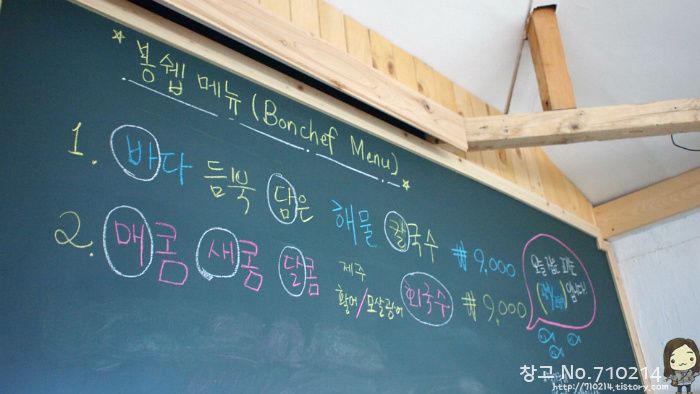 봉쉡 메뉴 (Bonchef Menu)
1. 바다 듬북 담은 해물 칼국수 ₩ 9,000
2. 매콤 새콤 달콤 제주 황어/모살광어 회국수 ₩ 9,000
오늘
입니다!
창고 No.710214
http://710214.tistory.com/